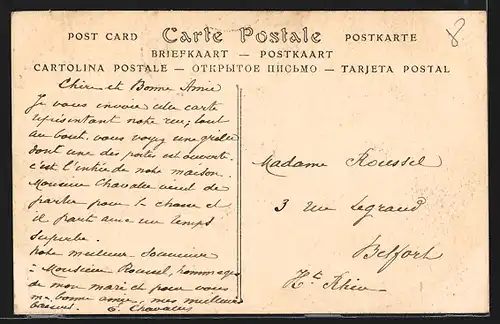 POST CARD Carte Postale POSTKARTE
BRIEFKAART — POSTKAART
CARTOLINA POSTALE — ОТКРЫТОЕ ПИСЬМО — TARJETA POSTAL
8
Chère et Bonne Amie
Je vous envoie cette carte
représentant notre rue; tout
au bout vous voyez une grille
dont une des portes est ouverte
c'est l'entrée de notre maison.
Monsieur Chavatte vient de
partir pour la chasse et
il part avec un temps
superbe.
notre meilleur souvenir
à Monsieur Roussel, hommages
de mon mari et pour vous
ma bonne amie, mes meilleurs
baisers.
Madame Roussel
3 rue Legrand
Belfort
Ht Rhin